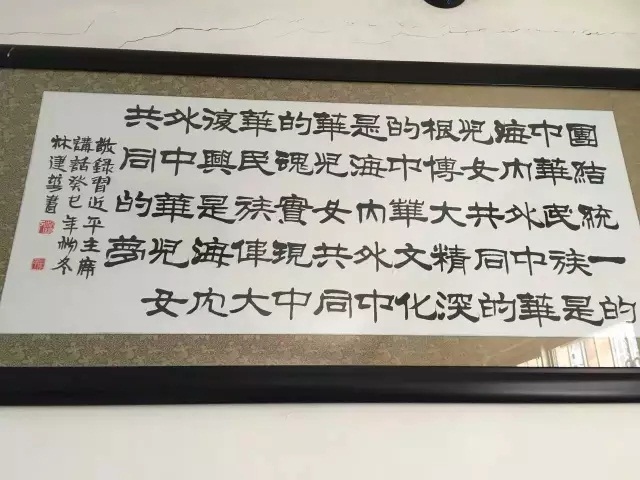 團結統一的
中華民族是
海内外中華
兒女共同的
根博大精深
的中華文化
是海内外中
華兒女共同
的魂實現中
華民族偉大
復興是海内
外中華兒女
共同的夢
敬録習近平主席
講話癸巳年初冬
林建華書